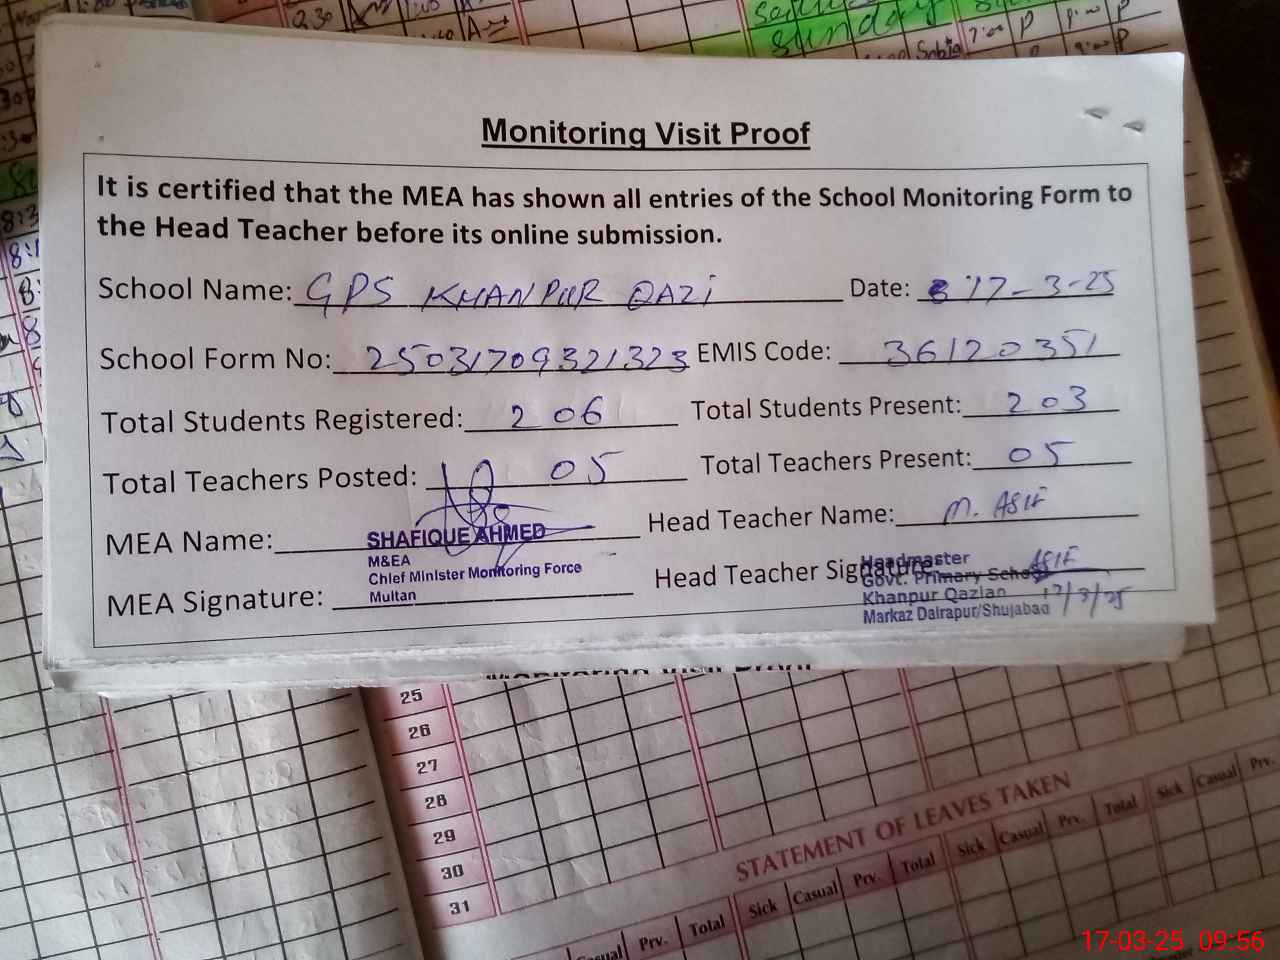 Sunday
Monitoring Visit Proof
It is certified that the MEA has shown all entries of the School Monitoring Form to
the Head Teacher before its online submission.
School Name: GPS KHANPUR QAZI Date: 17-3-25
School Form No: 25031709321323 EMIS Code: 36120351
Total Students Registered: 206 Total Students Present: 203
Total Teachers Posted: 05 Total Teachers Present: 05
MEA Name: SHAFIQUE AHMED Head Teacher Name: M. ASIF
M&EA
Chief Minister Monitoring Force
Multan
MEA Signature: Head Teacher Signature: ASIF
Headmaster
Govt. Primary School
Khanpur Qazian 17/3/25
Markaz Dairapur/Shujabad
Monitoring Visit Proof
25
26
27
28
29
30
31
STATEMENT OF LEAVES TAKEN
Casual Prv. Total Sick Casual Prv. Total Sick Casual Prv. Total Sick Casual Prv.
17-03-25 09:56